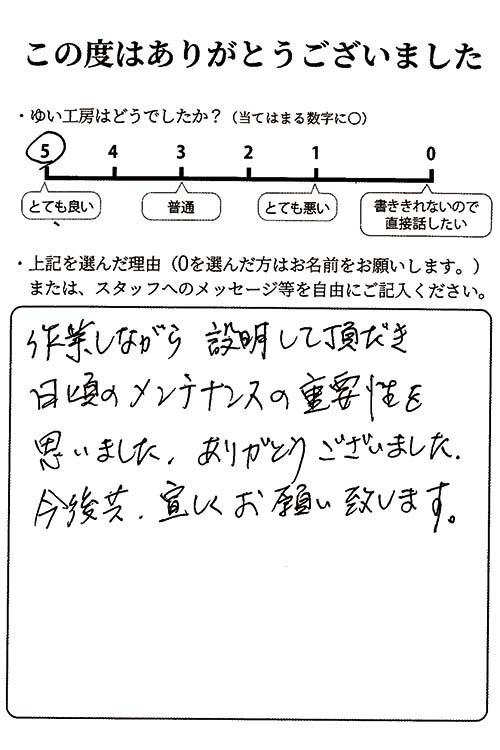 この度はありがとうございました
・ゆい工房はどうでしたか？（当てはまる数字に○）
5 4 3 2 1 0
とても良い 普通 とても悪い 書ききれないので
直接話したい
・上記を選んだ理由（0を選んだ方はお名前をお願いします。）
または、スタッフへのメッセージ等を自由にご記入ください。
作業しながら 説明して頂だき
日頃のメンテナンスの重要性を
思いました。ありがとうございました。
今後共、宜しくお願い致します。